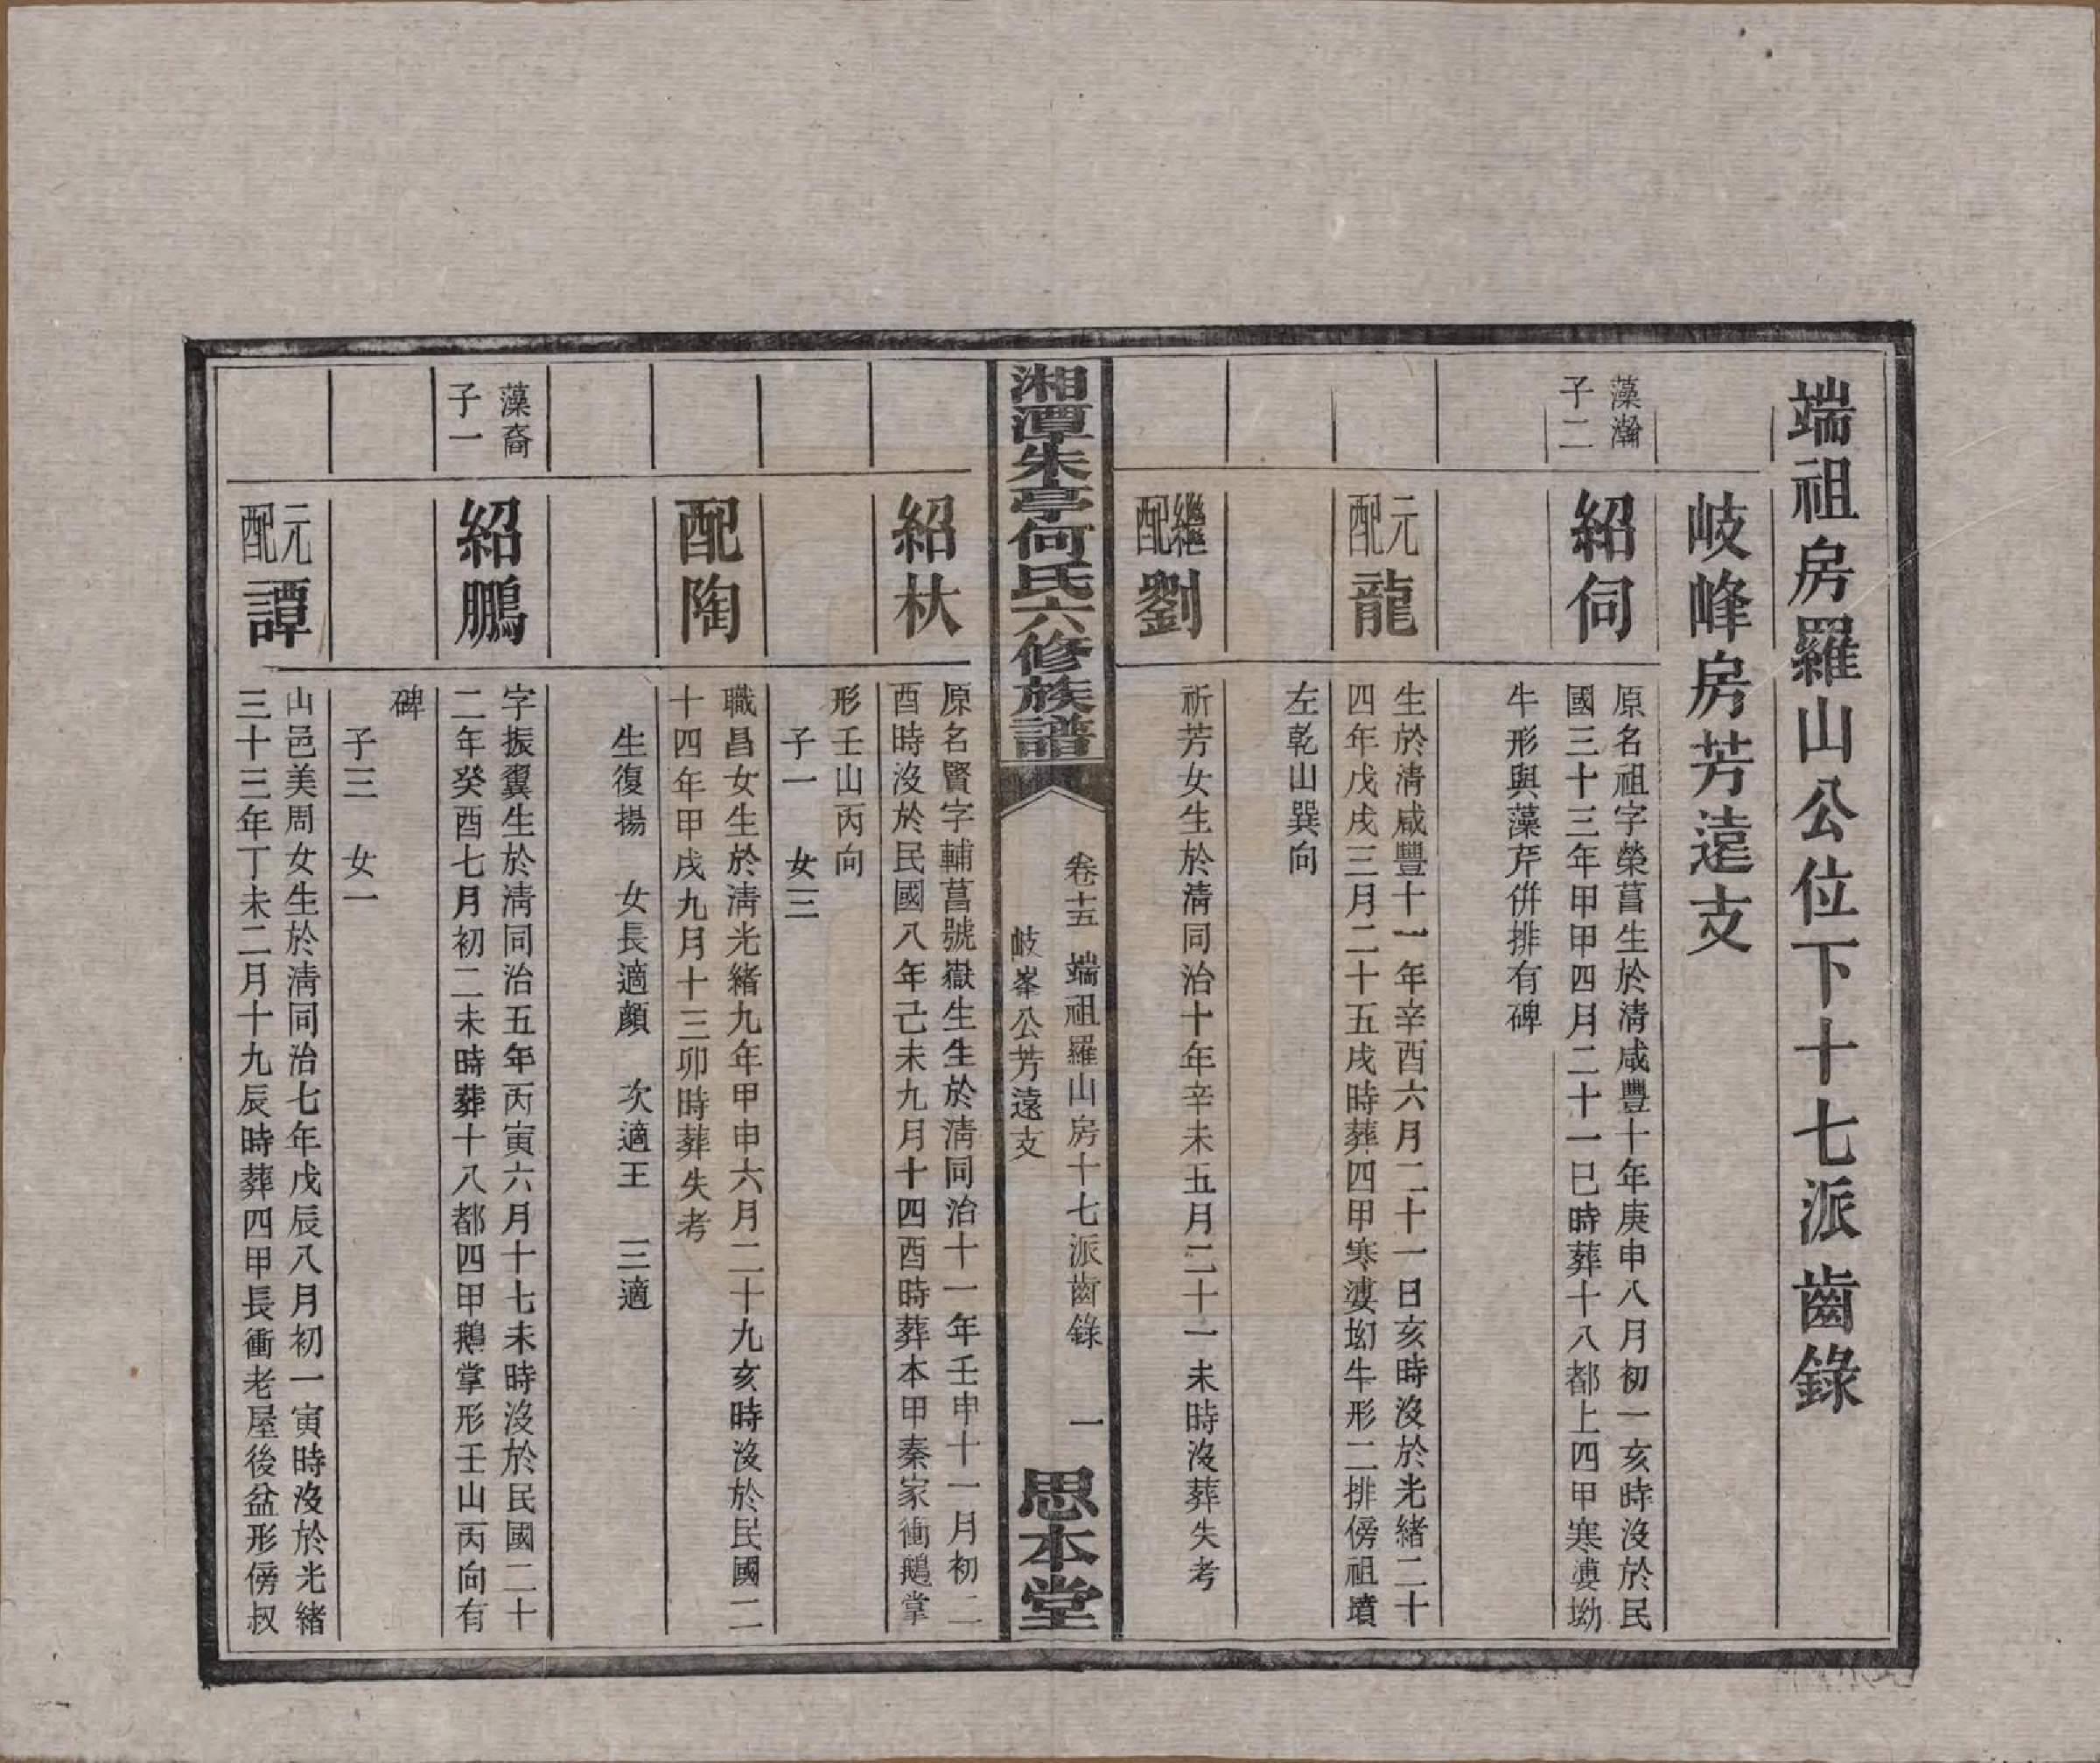 端祖房羅山公位下十七派齒錄
岐峰房芳遠支
藻瀚
子二
紹伺
原名祖字榮菖生於清咸豐十年庚申八月初一亥時沒於民
國三十三年甲甲四月二十一巳時葬十八都上四甲寒婆坳
牛形與藻芹併排有碑
元配龍
生於清咸豐十一年辛酉六月二十一日亥時沒於光緒二十
四年戊戌三月二十五戌時葬四甲寒婆坳牛形二排傍祖墳
左乾山巽向
繼配劉
祈芳女生於清同治十年辛未五月二十一未時沒葬失考
湘潭朱亭何氏六修族譜
卷十五 端祖羅山房十七派齒錄 一
岐峯公芳遠支
思本堂
紹杕
原名賢字輔菖號嶽生生於清同治十一年壬申十一月初二
酉時沒於民國八年己未九月十四酉時葬本甲秦家衝鵝掌
形壬山丙向
子一 女三
配陶
職昌女生於清光緒九年甲申六月二十九亥時沒於民國二
十四年甲戌九月十三卯時葬失考
生復揚 女長適顏 次適王 三適
藻裔
子一
紹鵬
字振翼生於清同治五年丙寅六月十七未時沒於民國二十
二年癸酉七月初二未時葬十八都四甲鵝掌形壬山丙向有
碑
子三 女一
元配譚
山邑美周女生於清同治七年戊辰八月初一寅時沒於光緒
三十三年丁未二月十九辰時葬四甲長衝老屋後盆形傍叔